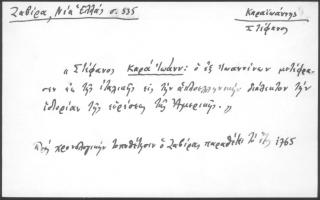 Ζαβίρα, Νέα Ἑλλάς σ. 535
Καραϊωάννης
Στέφανος
"Στέφανος Καρᾶ Ἰωάνν: ὁ ἐξ Ἰωαννίνων μετέφρα-
σεν ἐκ τῆς ἰταλικῆς εἰς τὴν ἁπλοελληνικὴν διάλεκτον τὴν
ἱστορίαν τῆς εὑρέσεως τῆς Ἀμερικῆς."
χρονολογικὴν ὁ Ζαβίρας παραθέτει τὸ ἔτος 1765